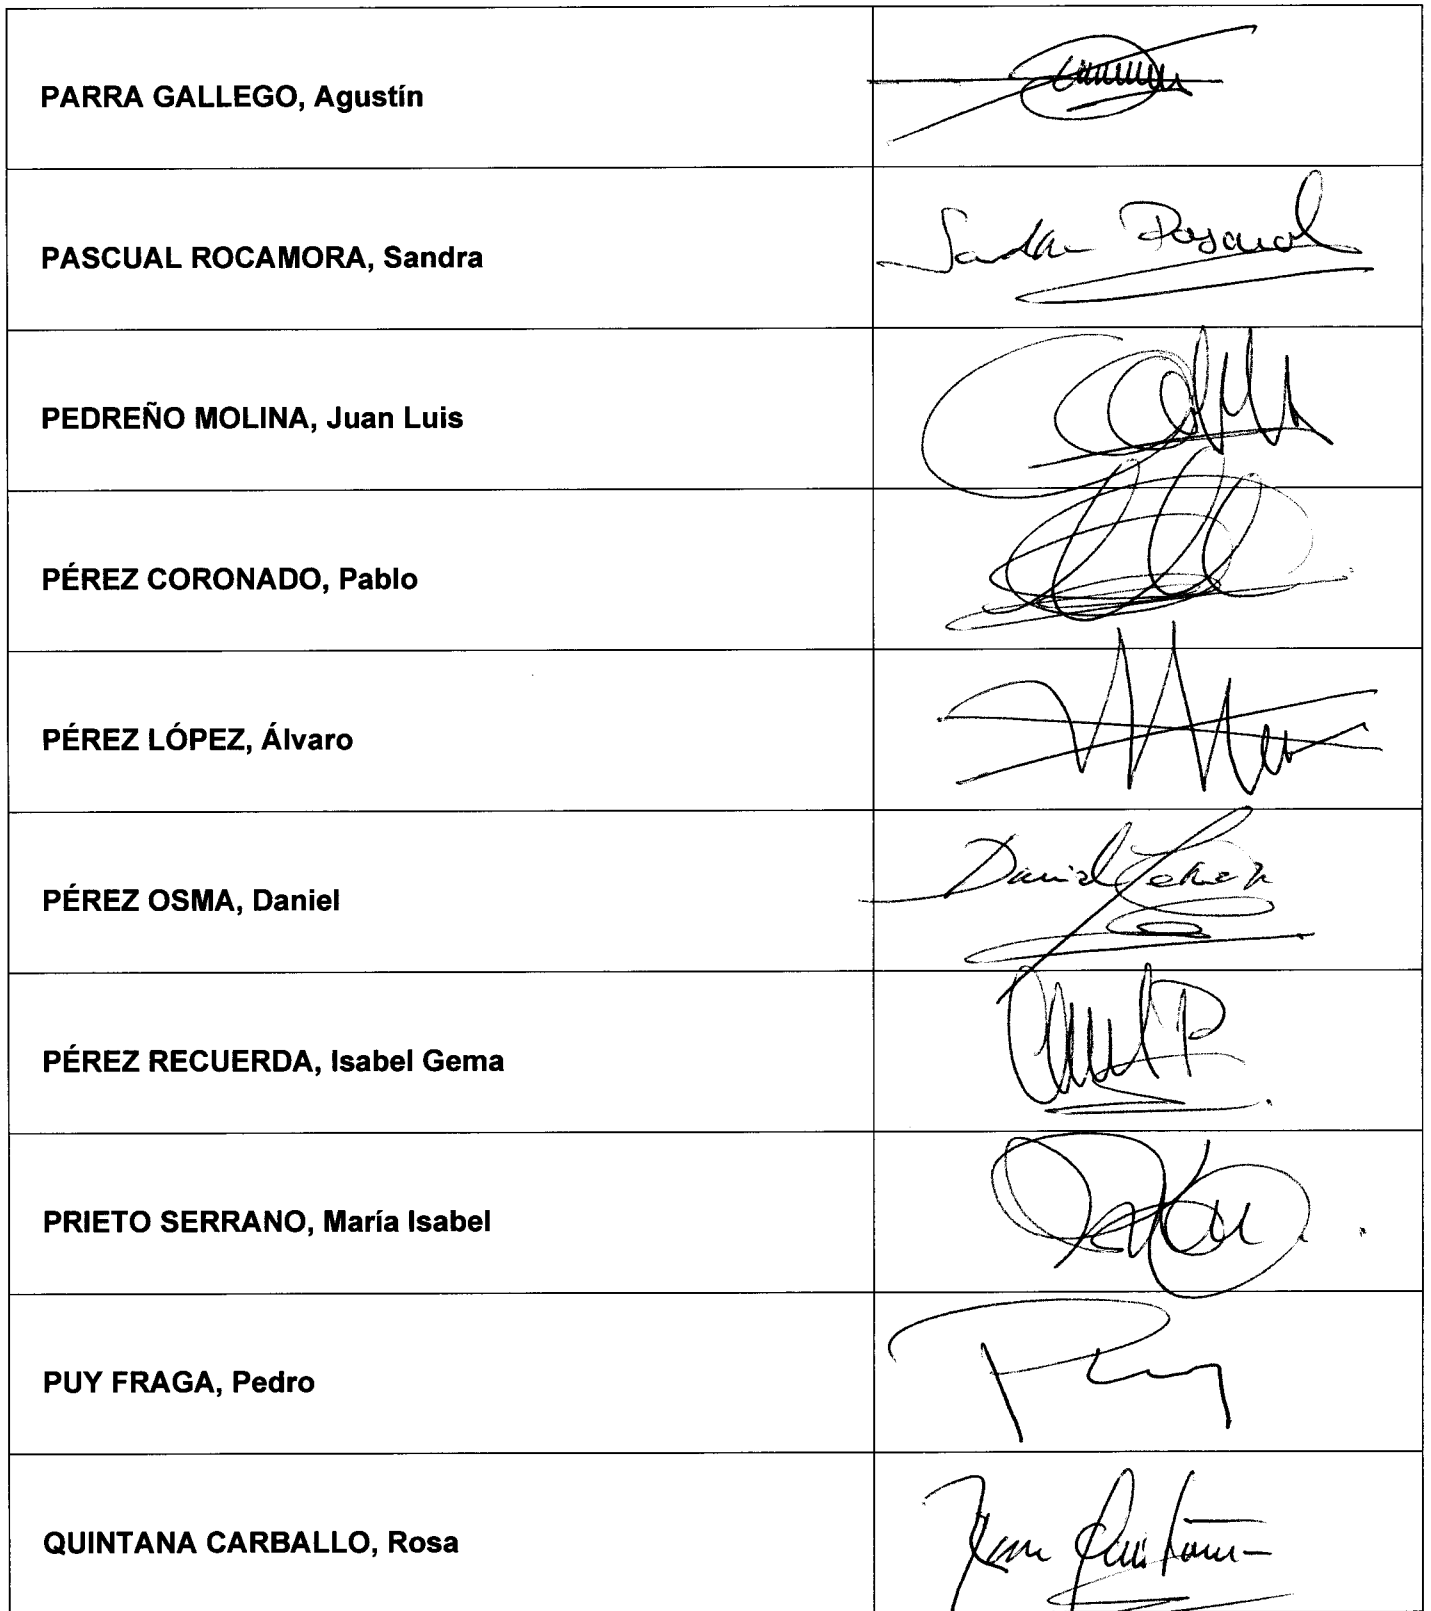 PARRA GALLEGO, Agustín
PASCUAL ROCAMORA, Sandra
Sandra Pascual
PEDREÑO MOLINA, Juan Luis
PÉREZ CORONADO, Pablo
PÉREZ LÓPEZ, Álvaro
PÉREZ OSMA, Daniel
Daniel Pérez
PÉREZ RECUERDA, Isabel Gema
PRIETO SERRANO, María Isabel
PUY FRAGA, Pedro
Puy
QUINTANA CARBALLO, Rosa
Rosa Quintana